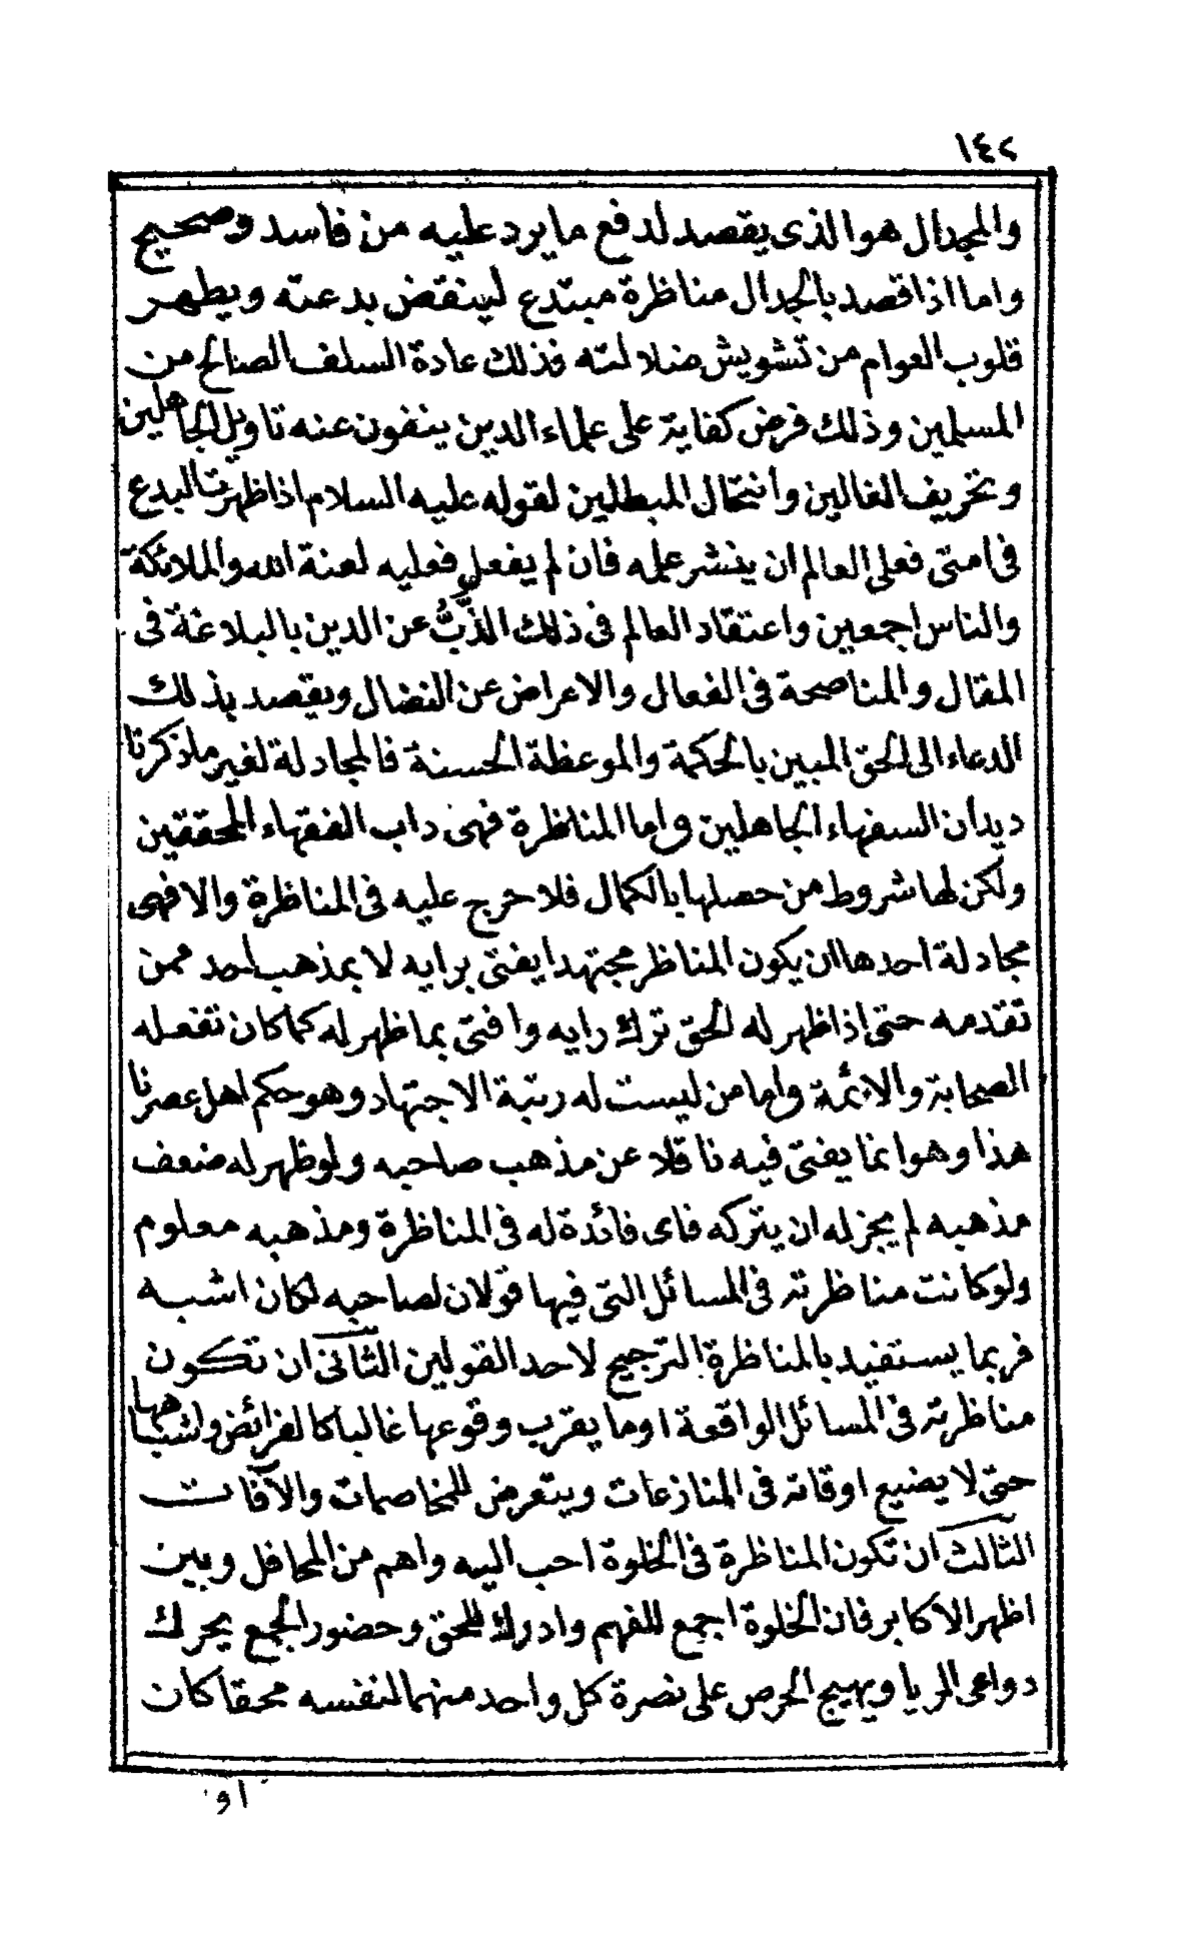 ١٤٢
والمجدال هو الذى يقصد لدفع ما يرد عليه من فاسد وصحيح
واما اذا قصد بالجدال مناظرة مبتدع لينقض بدعته ويطهر
قلوب العوام من تشويش ضلالته فذلك عادة السلف الصالح من
المسلمين وذلك فرض كفاية على علماء الدين ينفون عنه تاويل الجاهلين
وتحريف الغالين وانتحال المبطلين لقوله عليه السلام اذا ظهرت البدع
فى امتى فعلى العالم ان ينشر علمه فان لم يفعل فعليه لعنة الله والملائكة
والناس اجمعين واعتقاد العالم فى ذلك الذَّبُّ عن الدين بالبلاغة فى
المقال والمناصحة فى الفعال والاعراض عن النضال ويقصد بذلك
الدعاء الى الحق المبين بالحكمة والموعظة الحسنة فالمجادلة لغير ما ذكرنا
ديدان السفهاء الجاهلين واما المناظرة فهى داب الفقهاء المحققين
ولكن لها شروط من حصلها بالكمال فلا حرج عليه فى المناظرة والا فهى
مجادلة احدها ان يكون المناظر مجتهدا يفتى برايه لا بمذهب احد ممن
تقدمه حتى اذا ظهر له الحق ترك رايه وافتى بما ظهر له كما كان تفعله
الصحابة والائمة واما من ليست له رتبة الاجتهاد وهو حكم اهل عصرنا
هذا وهو انما يفتى فيه ناقلا عن مذهب صاحبه ولو ظهر له ضعف
مذهبه لم يجز له ان يتركه فاى فائدة له فى المناظرة ومذهبه معلوم
ولو كانت مناظرته فى المسائل التى فيها قولان لصاحبه لكان اشبه
فربما يستفيد بالمناظرة الترجيح لاحد القولين الثانى ان تكون
مناظرته فى المسائل الواقعة او ما يقرب وقوعها غالبا كالفرائض واشباهها
حتى لا يضيع اوقاته فى المنازعات ويتعرض للمخاصمات والآفات
الثالث ان تكون المناظرة فى الخلوة احب اليه واهم من المحافل وبين
اظهر الاكابر فان الخلوة اجمع للفهم وادرك للحق وحضور الجمع يحرك
دواعى الريا ويهيج الحرص على نصرة كل واحد منهما لنفسه محقا كان
او